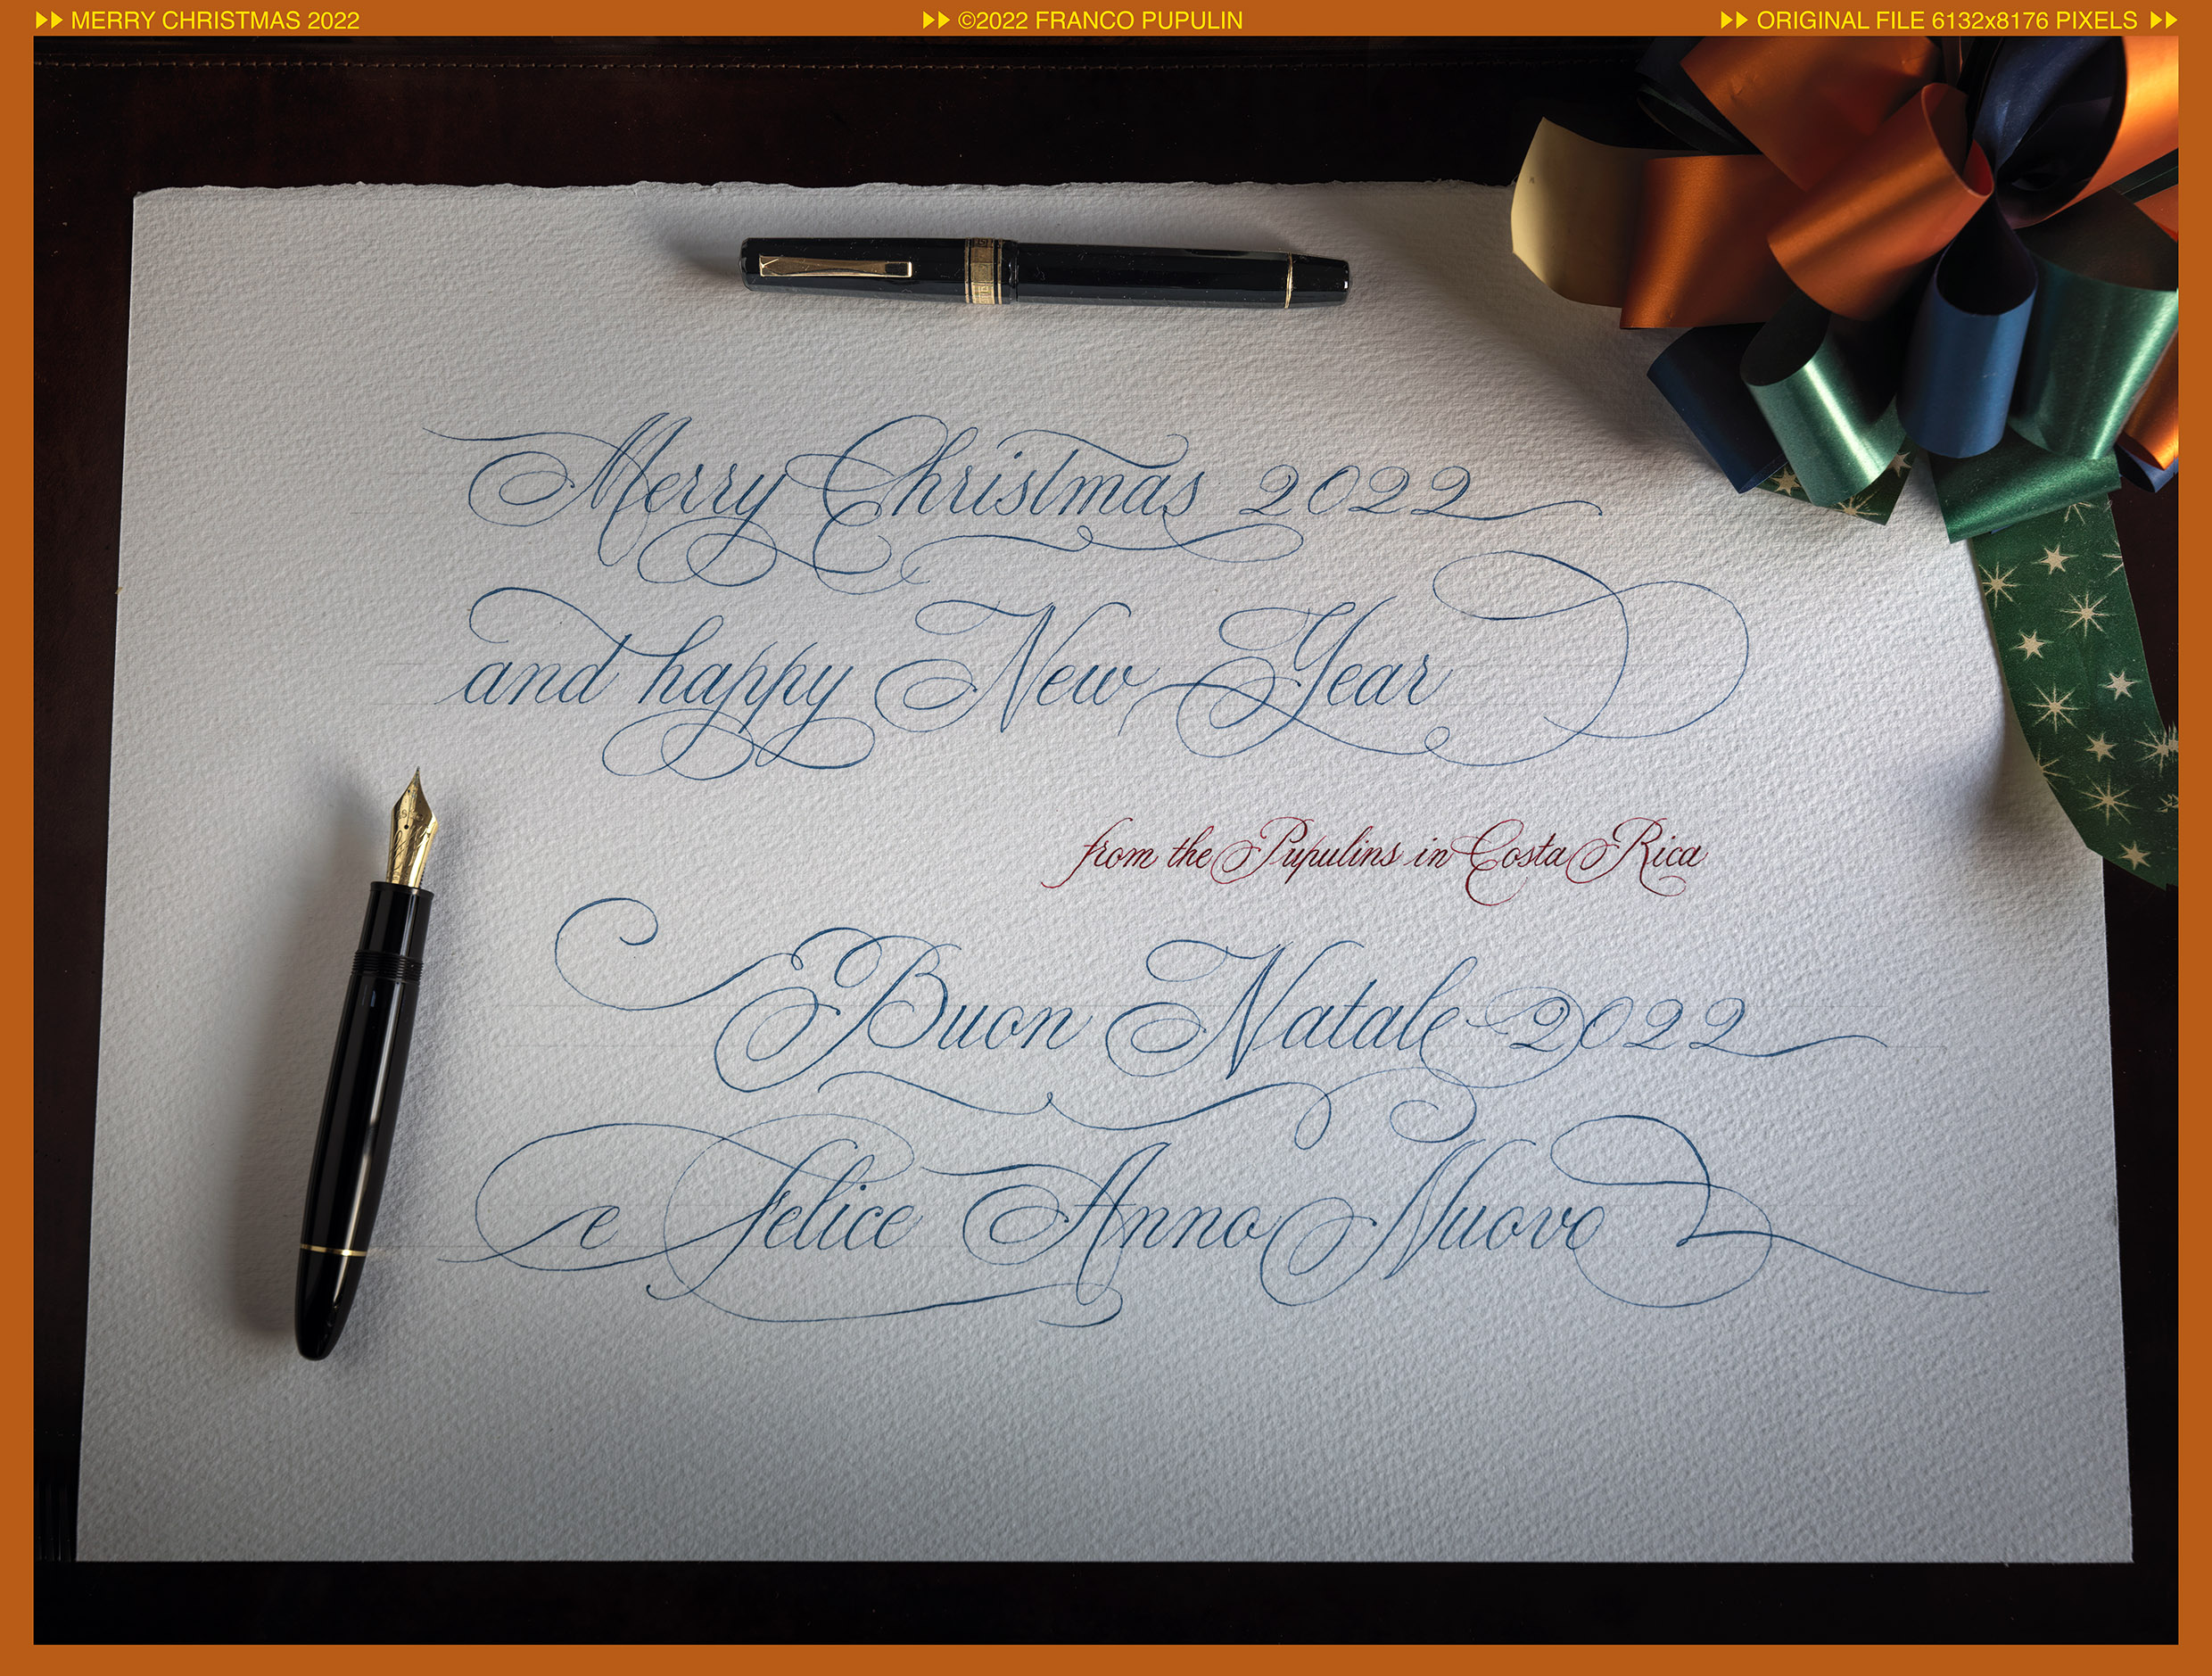 MERRY CHRISTMAS 2022
©2022 FRANCO PUPULIN
ORIGINAL FILE 6132x8176 PIXELS
Merry Christmas 2022
and happy New Year
from the Pupulins in Costa Rica
Buon Natale 2022
e felice Anno Nuovo